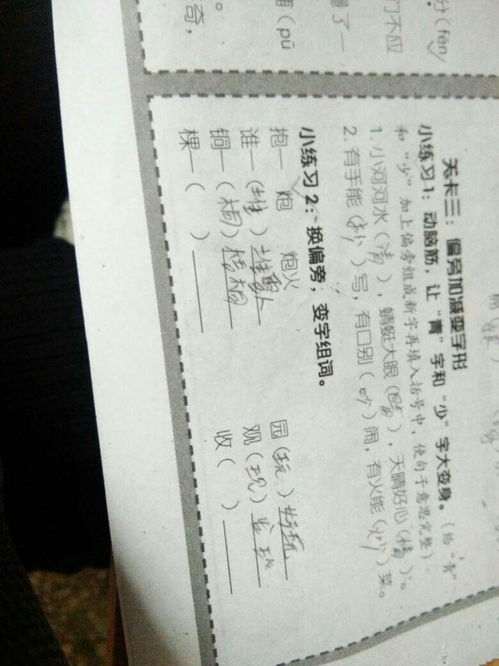 分(fèn
们不应
了一
甫(pū
。
奇，
关卡三：偏旁加减变字形
小练习1：动脑筋，让“青”字和“少”字大变身。(给“青”
和“少”加上偏旁组成新字再填入括号中，使句子意思完整)
1. 小河河水(清)，蜻蜓大眼(睛)，天晴好心(情)。
2. 有手能(抄)写，有口别(吵)闹，有火能(炒)菜。
小练习2：换偏旁，变字组词。
抱一 炮 炮火 园(玩)好玩
谁一(堆) 观(现)
铜一(桐)梧桐 收( )
棵一( )